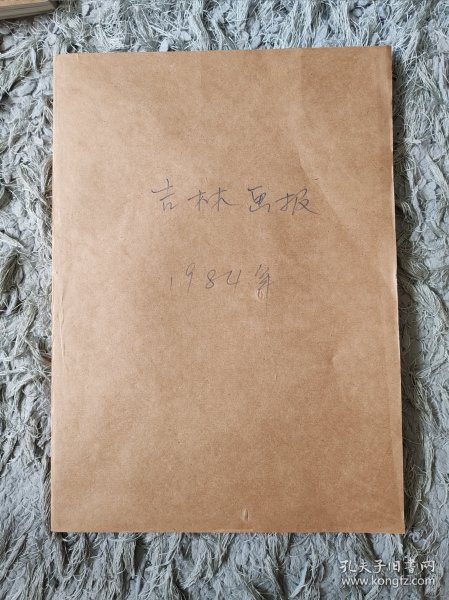 吉林画报
1984年
孔夫子旧书网
www.kongfz.com